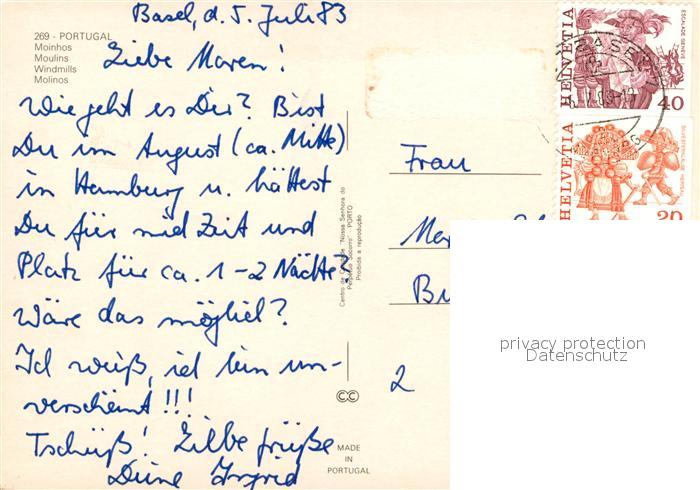 Basel, d. 5. Juli 83
269 - PORTUGAL
Moinhos
Moulins
Windmills
Molinos
Liebe Maren!
Wie geht es Dir? Bist
Du im August (ca. Mitte)
in Hamburg u. hättest
Du für mich Zeit und
Platz für ca. 1-2 Nächte?
Wäre das möglich?
Ich weiß, ich bin un-
verschämt!!!
Tschüß! Liebe Grüße
Deine Ingrid
MADE
IN
PORTUGAL
"Nossa Senhora do
Perpétuo Socorro" - PORTO
Proibida a reprodução
CC
Frau
2
HELVETIA
ESCALADE GENÈVE
40
HELVETIA
20
BASEL
privacy protection
Datenschutz